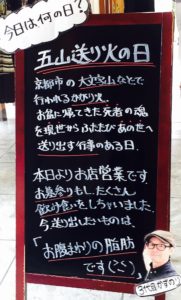 今日は何の日?
五山送り火の日
京都市の大文字山などで
行われるかがり火。
お盆に帰ってきた死者の魂
を現世からふたたびあの世へ
送り出す行事のある日。
本日よりお店営業です
お墓参りもし、たくさん
飲み食いをしちゃいました。
今送り出したいものは、
「お腹まわりの脂肪
です(笑)」
3代目かずの